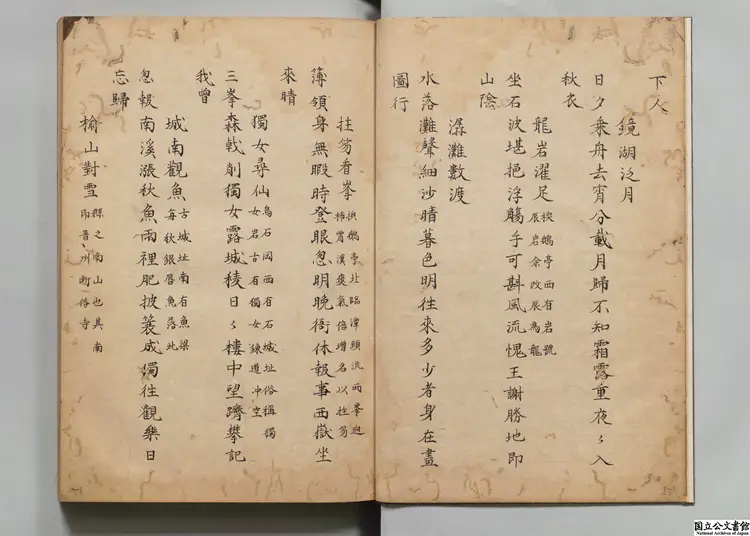 下人
鏡湖泛月
日夕乘舟去宵分載月歸不知霜露重夜〻入
秋衣
龍岩濯足
挾鷁亭西有岩號
辰岩余改辰為龍
坐石波堪挹浮觴手可斟風流愧王謝勝地即
山陰
潺灘數渡
水落灘聲細沙晴暮色明往來多少者身在畫
圖行
拄笏看峯
亭北臨潭頭流兩峯
霄漢爽氣倍增名以拄笏
簿領身無暇時登眼忽明晚衙休報事西嶽坐
來晴
獨女尋仙
烏石岡西有石城址俗稱獨
女岩古有獨女鍊道冲空
三峯森戟削獨女露城稜日〻樓中望躋攀記
我曾
城南觀魚
古城址南有魚梁
每秋銀唇魚落此
忽報南溪漲秋魚雨裡肥披蓑成獨往觀樂日
忘歸
榆山對雪
縣之南山也其南
即晋〻州断俗寺
国立公文書館
National Archives of Japan